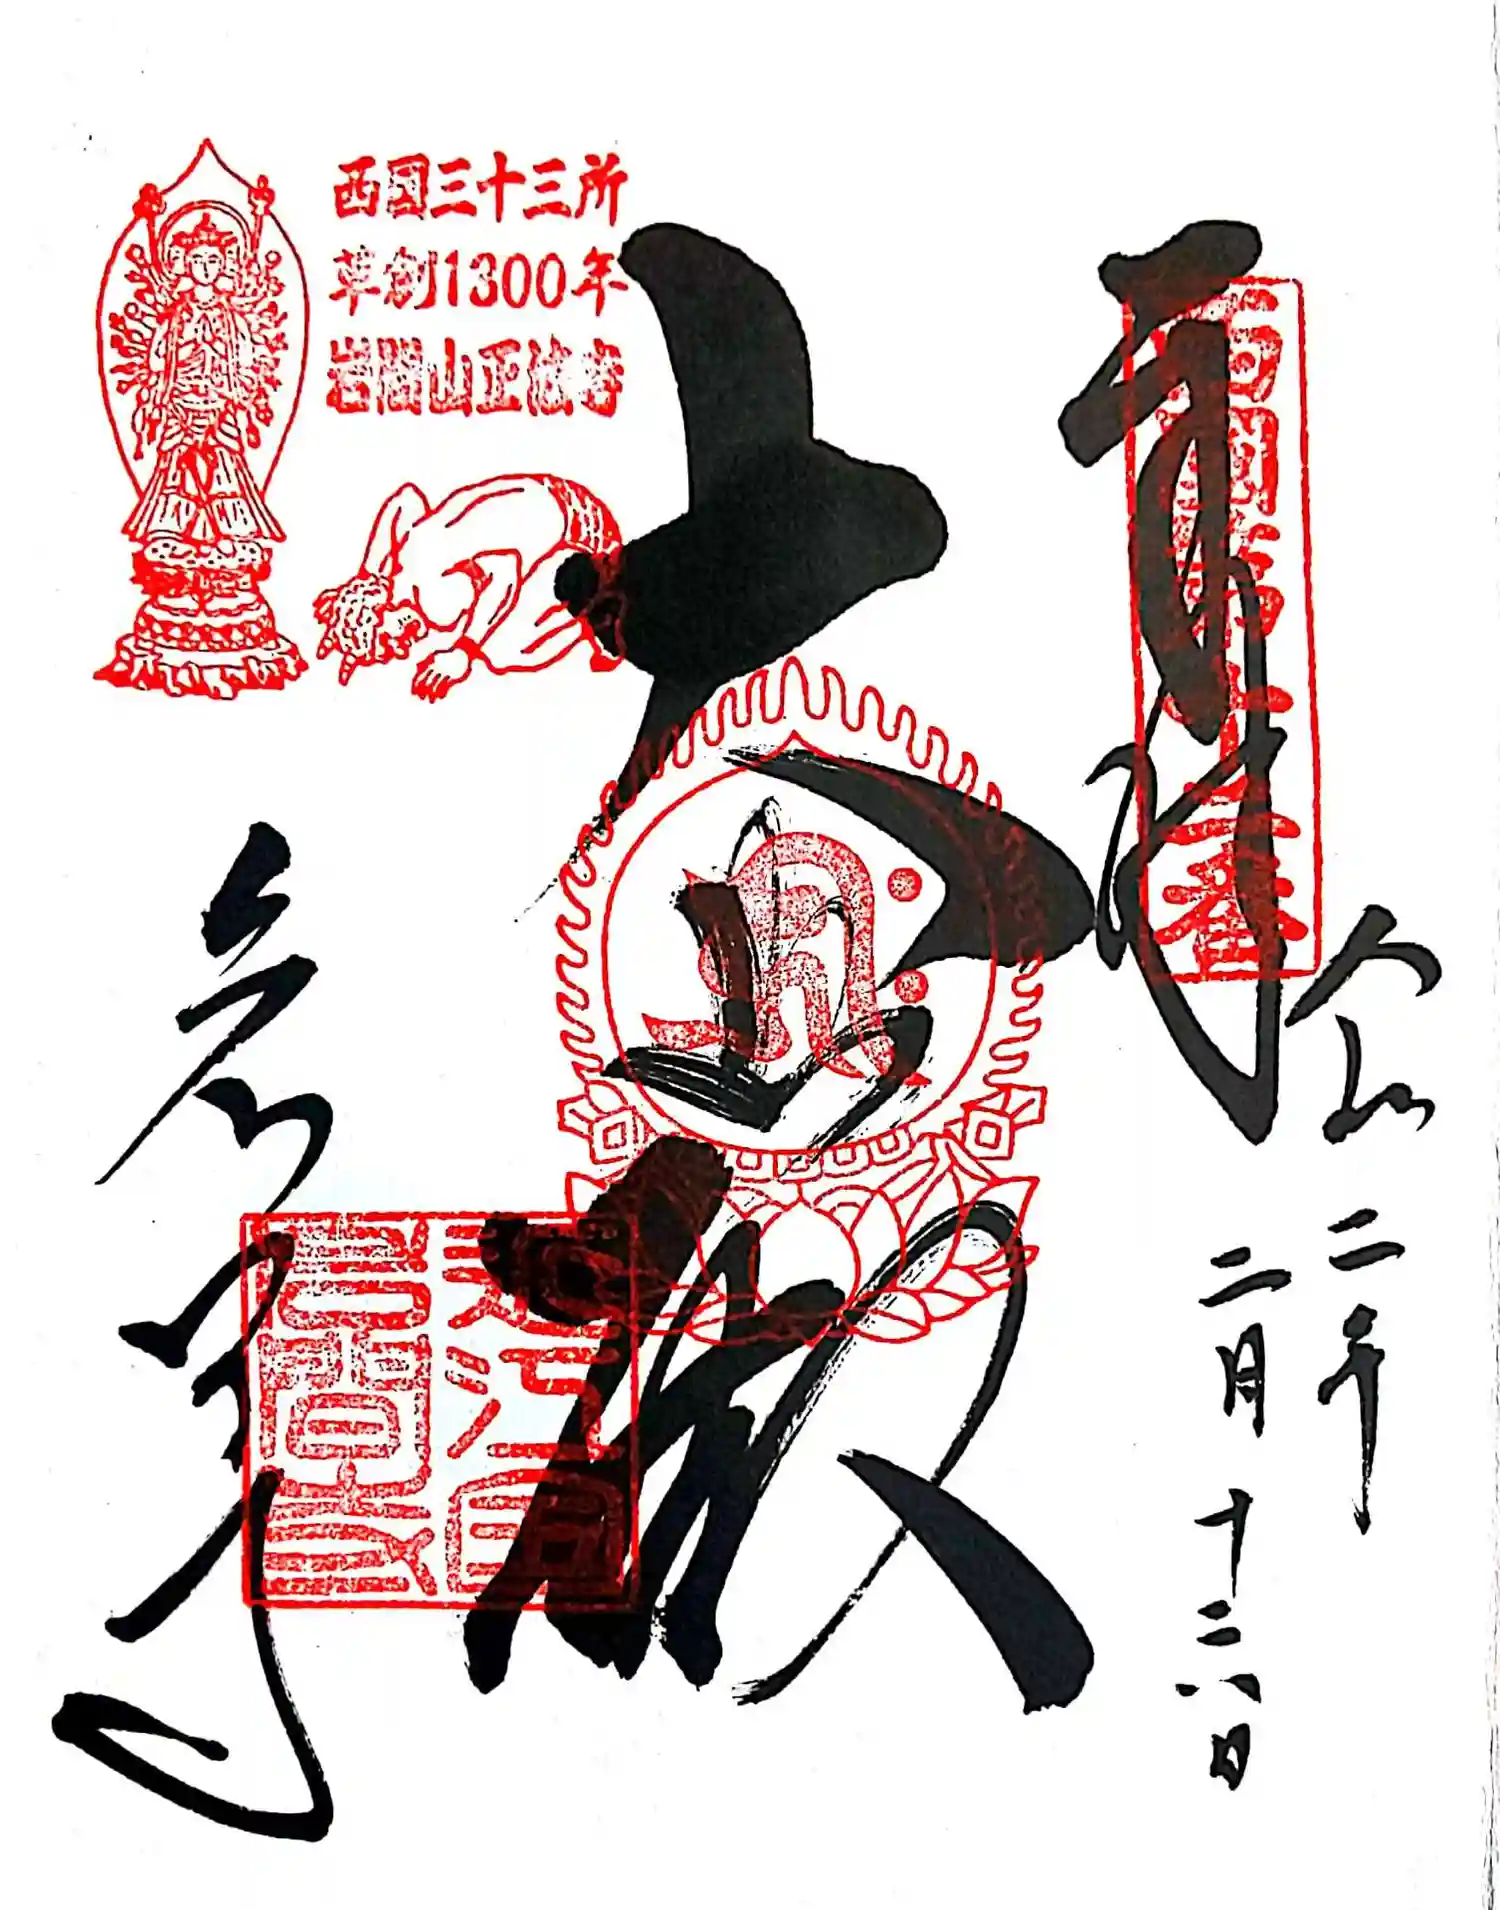 西国三十三所
草創1300年
岩間山正法寺
奉拝
西国第十二番
令和二年
二月十六日
大悲殿
近江国
岩間寺